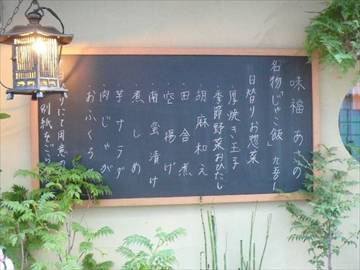 味福 あさの
名物"じゃこ飯"
日替りお惣菜
・厚焼き玉子
・季節野菜おひたし
・胡麻和え
・田舎煮
・空揚げ
・南蛮漬け
・煮しめ
・芋サラダ
・肉じゃが
おふくろ
別紙をご